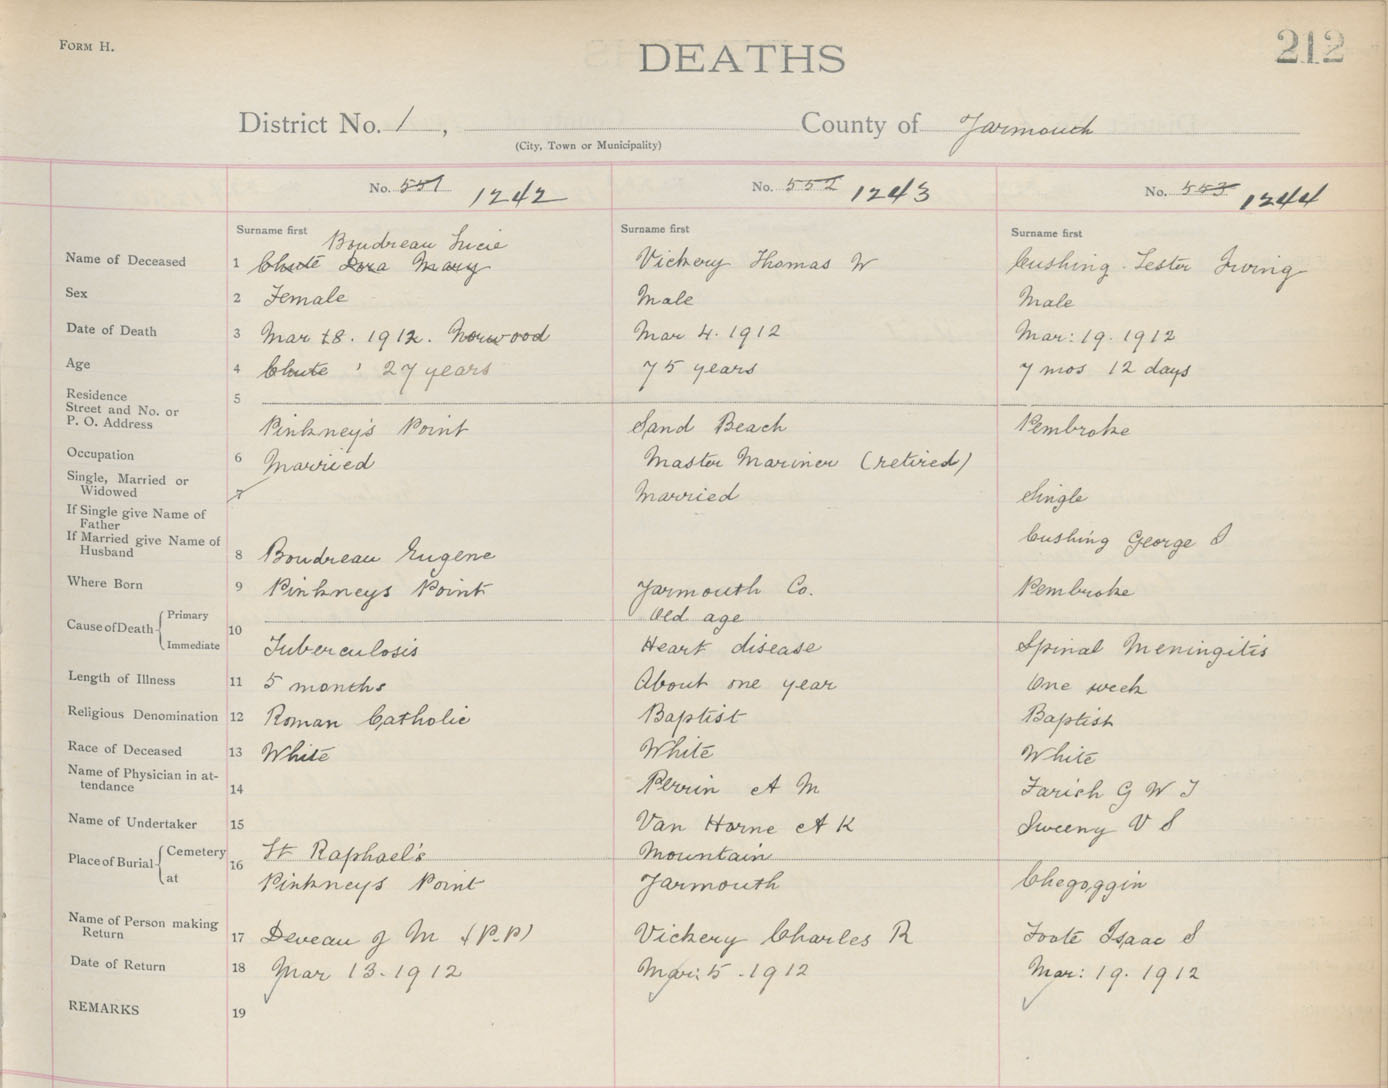 FORM H.
DEATHS
212
District No. 1, County of Yarmouth
(City, Town or Municipality)
No. 551 1242 No. 552 1243 No. 553 1244
Surname first Surname first Surname first
Boudreau Lucie
Name of Deceased 1 Chute Mary Vickery Thomas W Cushing Lester Irving
Sex 2 Female Male Male
Date of Death 3 Mar 1912. Norwood Mar 4. 1912 Mar: 19. 1912
Age 4 Chute 27 years 75 years 7 mos 12 days
Residence 5
Street and No. or
P. O. Address Pinkney's Point Sand Beach Pembroke
Occupation 6 Married Master Mariner (retired)
Single, Married or
Widowed 7 Married Single
If Single give Name of
Father
If Married give Name of Cushing George S
Husband 8 Boudreau Eugene
Where Born 9 Pinkneys Point Yarmouth Co. Pembroke
Cause of Death Primary Old age
10
Immediate Tuberculosis Heart disease Spinal Meningitis
Length of Illness 11 5 months About one year One week
Religious Denomination 12 Roman Catholic Baptist Baptist
Race of Deceased 13 White White White
Name of Physician in at-
tendance 14 Perrin A M Farish G W T
Name of Undertaker 15 Van Horne A K Sweeny V S
Place of Burial Cemetery 16 St Raphael's Mountain
at Pinkneys Point Yarmouth Chegoggin
Name of Person making
Return 17 Deveau J M (P.P) Vickery Charles R Foote Isaac S
Date of Return 18 Mar 13. 1912 Mar: 5. 1912 Mar: 19. 1912
REMARKS 19